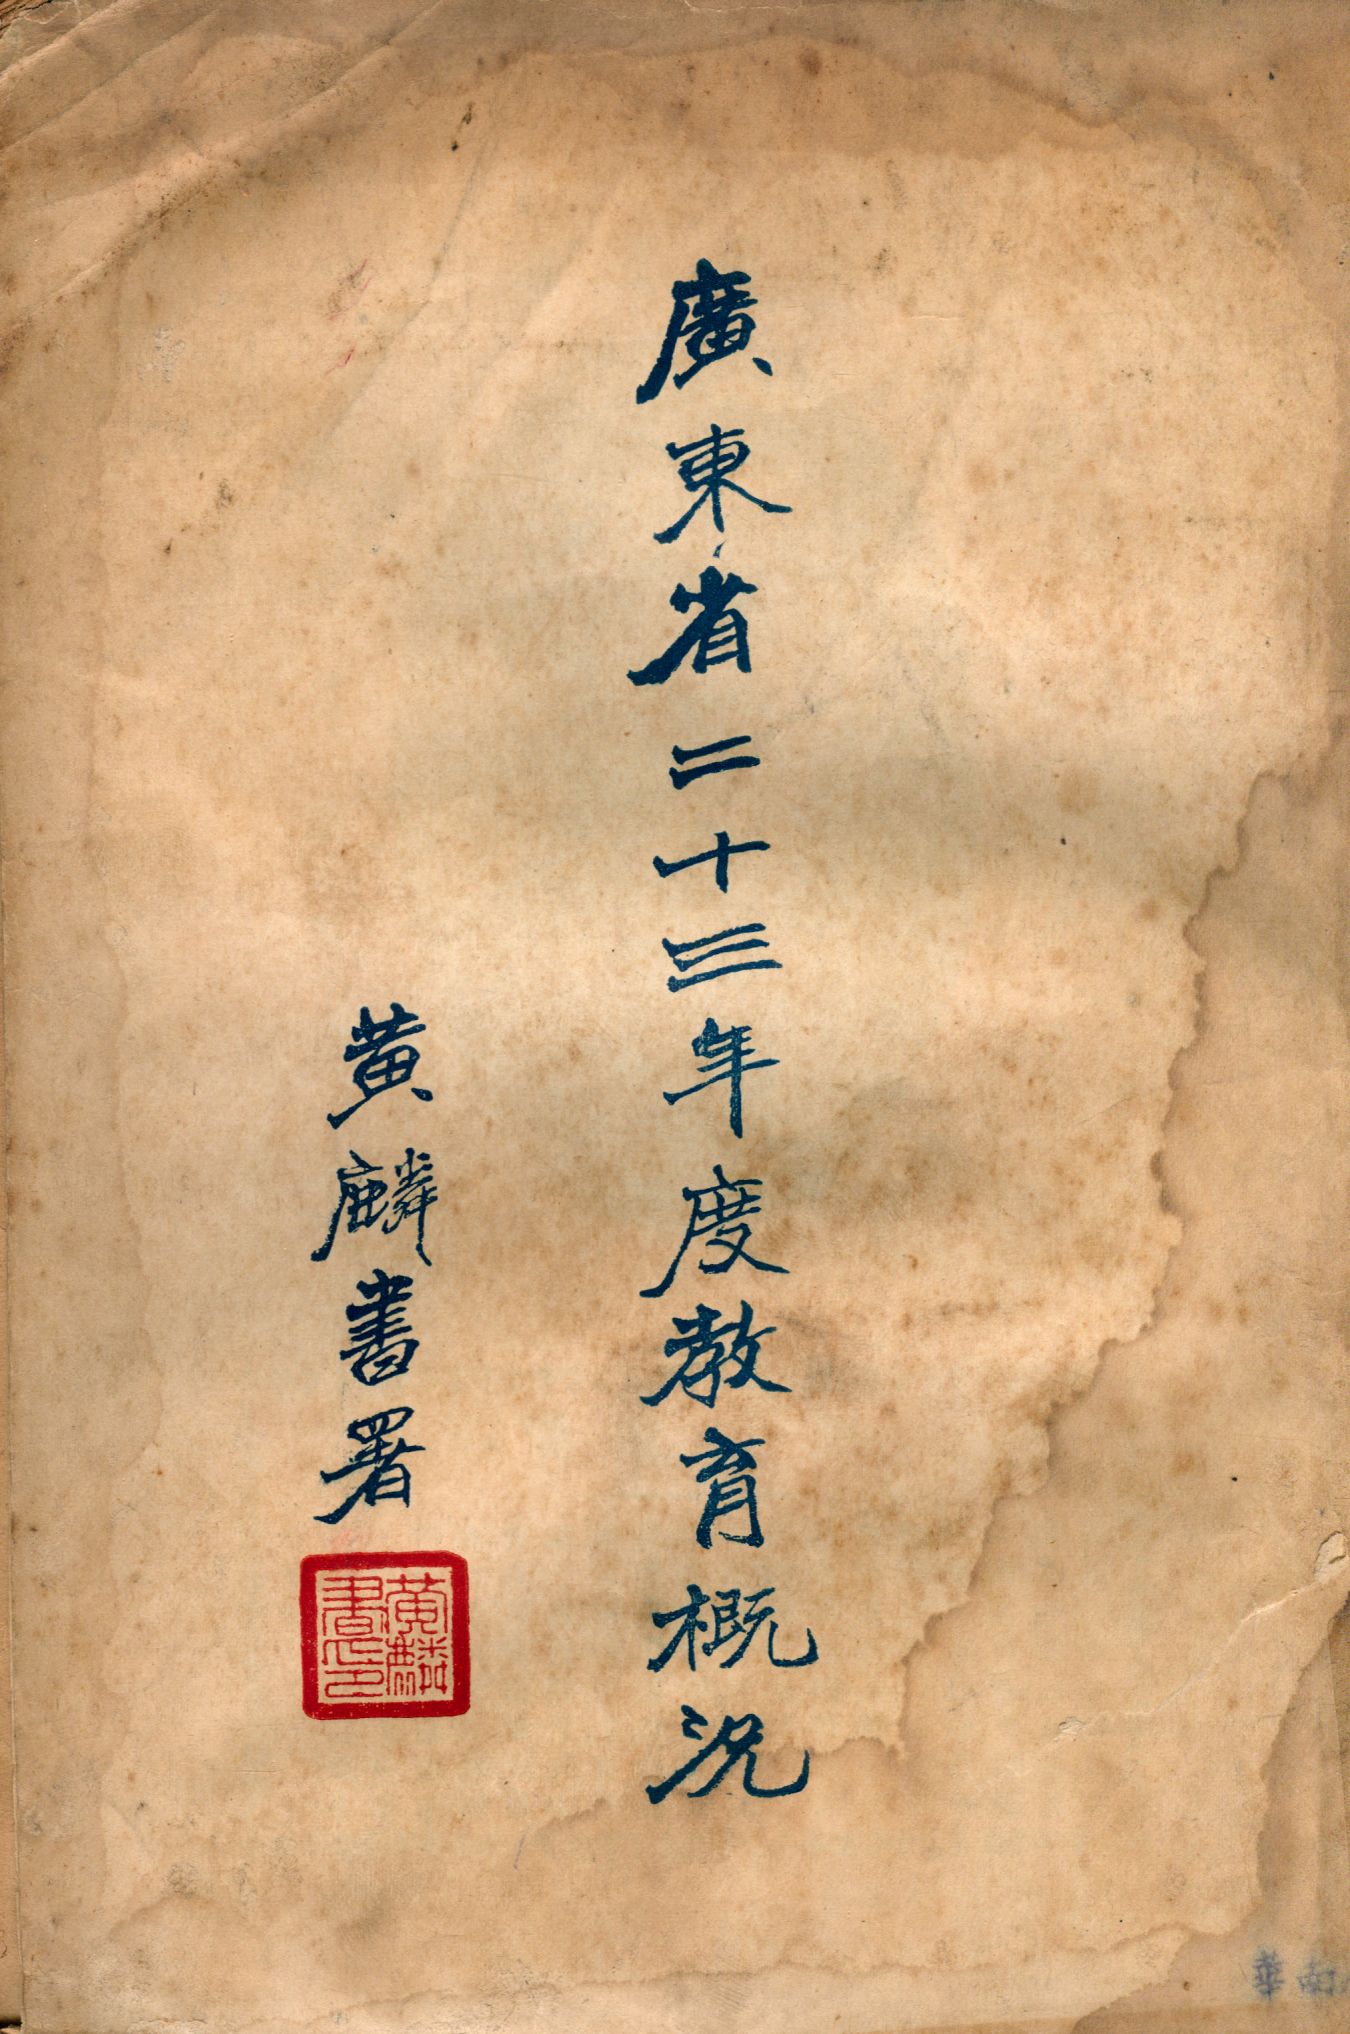 廣東省二十三年度教育概況
黃麟書署
黃麟書印
華南